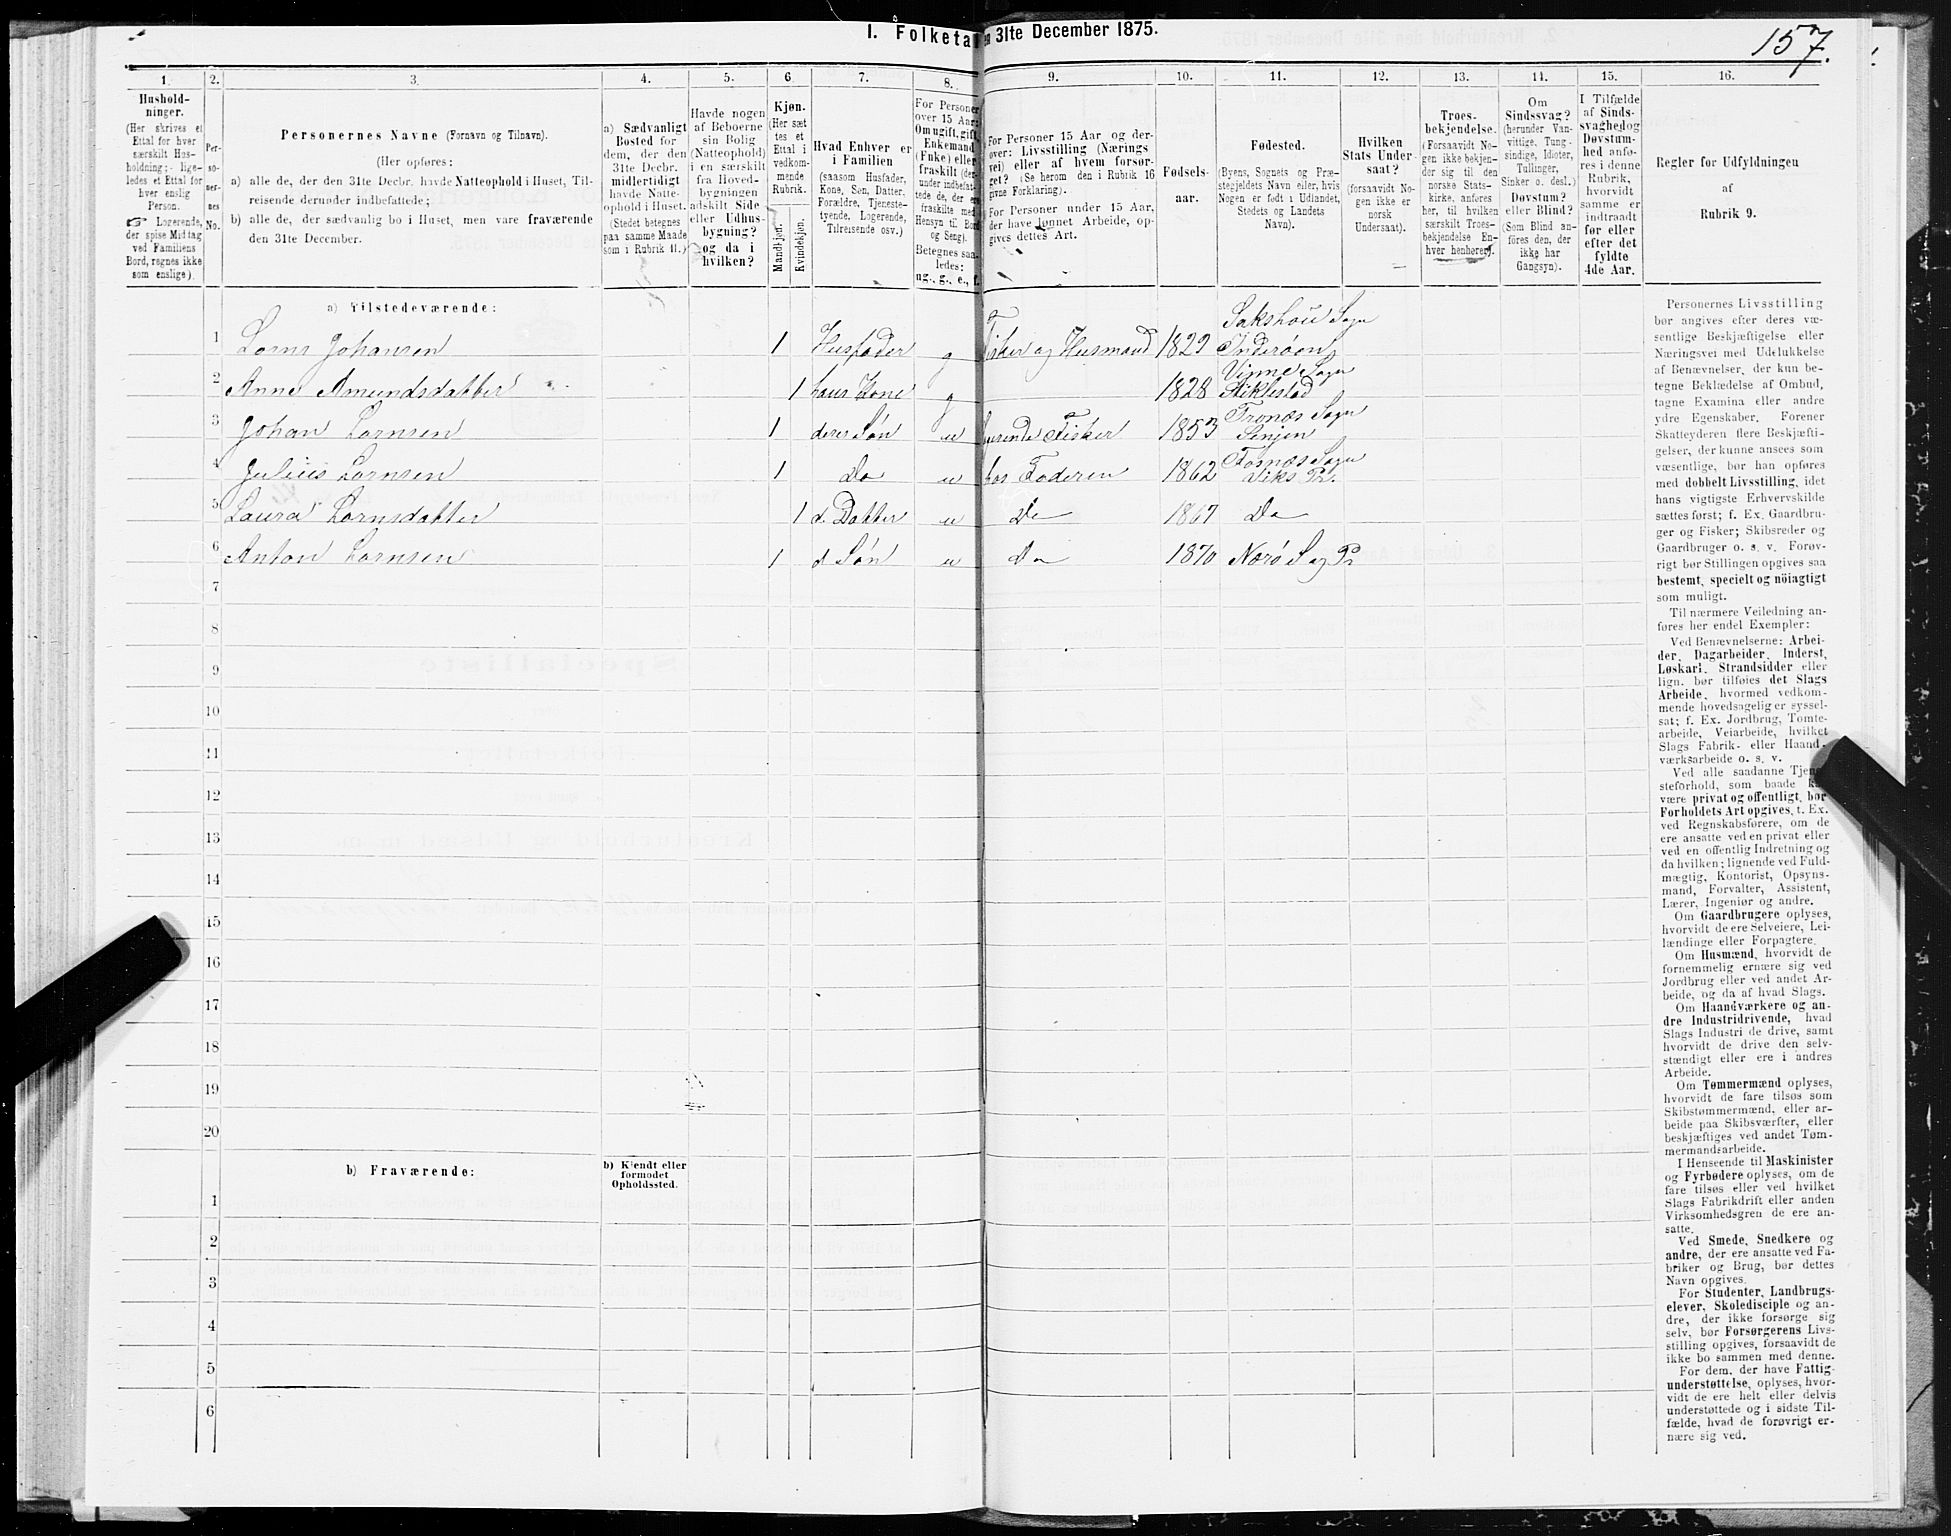 I. Folketa en 31te December 1875.
157.
1. 2. 3. 4. 5. 6. 7. 8. 9. 10. 11. 12. 13. 14. 15. 16.
Hushold-
ninger.
(Her skrives et
Ettal for hver
særskilt Hus-
holdning; lige-
ledes et Ettal for
hver enslig
Person.
☞ Logerende,
der spise Middag
ved Familiens
Bord, regnes ikke
som enslige).
Per-
so-
ner-
nes
No.
Personernes Navne (Fornavn og Tilnavn).
(Her opføres:
a) alle de, der den 31te Decbr. havde Natteophold i Huset, Til-
reisende derunder indbefattede;
b) alle de, der sædvanlig bo i Huset, men vare fraværende
den 31te December.
a) Sædvanligt
Bosted for
dem, der den
31te Decbr.
midlertidigt
havde Natte-
ophold i Huset.
(Stedet betegnes
paa samme Maade
som i Rubrik 11.)
Havde nogen
af Beboerne
sin Bolig
(Natteophold)
i en særskilt
fra Hoved-
bygningen
adskilt Side
eller Udhus-
bygning?
og da i
hvilken?
Kjøn.
(Her sæt
tes et
Ettal i
vedkom-
mende
Rubrik.
Mandkjøn.
Kvindekjøn.
Hvad Enhver er
i Familien
(saasom Husfader,
Kone, Søn, Datter,
Forældre, Tjeneste-
tyende, Logerende,
Tilreisende osv.)
For Personer
over 15 Aar:
Om ugift, gift,
Enkemand
(Enke) eller
fraskilt (der-
under indbefat-
tede de, der ere
fraskilte med
Hensyn til Bord
og Seng).
Betegnes saa-
ledes:
ug., g., e., f.
For Personer 15 Aar og der-
over: Livsstilling (Nærings
vei) eller af hvem forsør-
get? (Se herom den i Rubrik 16
givne Forklaring).
For Personer under 15 Aar,
der have lønnet Arbeide, op-
gives dettes Art.
Fødsels-
aar.
Fødested.
(Byens, Sognets og Præ-
stegjeldets Navn eller, hvis
Nogen er født i Udlandet,
Stedets og Landets
Navn).
Hvilken
Stats Under-
saat?
(forsaavidt No-
gen ikke er
norsk
Undersaat).
Troes-
bekjendelse.
(Forsaavidt No-
gen ikke bekjen-
der sig til den
norske Stats-
kirke, anføres
her, til hvilken
særskilt Troes-
bekjendelse En-
hver henhører).
Om
Sindssvag?
(herunder Van-
vittige, Tung-
sindige, Idioter,
Tullinger,
Sinker o. desl.)
Døvstum?
eller Blind?
(Som Blind an-
føres den, der
ikke har
Gangsyn).
I Tilfælde
af Sinds-
svaghed og
Døvstum-
hed anfø-
res i denne
Rubrik,
hvorvidt
samme er
indtraadt
før eller
efter det
fyldte
4de Aar.
Regler for Udfyldningen
af
Rubrik 9.
a) Tilstedeværende:
1 Lorns Johansen 1 Husfader g Fisker og Husmand 1829 Sakshou Sogn
Inderøen
2 Anne Amundsdatter 1 hans Kone g 1828 Vinne Sogn
Stiklestad
3 Johan Lornsen 1 deres Søn u Fisker 1853 Tronæs Sogn
Senjen
4 Julius Lornsen 1 Do u hos Faderen 1862 Fosnæs Sogn
Viks Pr.
5 Laura Lornsdatter 1 d. Datter u Do 1867 Do
6 Anton Lornsen 1 d. Søn u Do 1870 Nærø S og Pr
7
8
9
10
11
12
13
14
15
16
17
18
19
20
b) Fraværende:
b) Kjendt eller
formodet
Opholdssted.
1
2
3
4
5
6
Personernes Livsstilling
bør angives efter deres væ-
sentlige Beskjæftigelse eller
Næringsvei med Udelukkelse
af Benævnelser, der kun be-
tegne Beklædelse af Ombud,
tagne Examina eller andre
ydre Egenskaber. Forener
Skatteyderen flere Beskjæfti-
gelser, der kunne ansees som
væsentlige, bør han opføres
med dobbelt Livsstilling, idet
hans vigtigste Erhvervskilde
sættes først; f. Ex. Gaardbru-
ger og Fisker; Skibsreder og
Gaardbruger o. s. v. Forøv-
rigt bør Stillingen opgives saa
bestemt, specielt og nöiagtigt
som muligt.
Til nærmere Veiledning an-
føres her endel Exempler:
Ved Benævnelserne: Arbei-
der, Dagarbeider, Inderst,
Løskarl, Strandsidder eller
lign. bør tilføies det Slags
Arbeide, hvormed vedkom-
mende hovedsagelig er syssel-
sat; f. Ex. Jordbrug, Tomte-
arbeide, Veiarbeide, hvilket
Slags Fabrik- eller Haand-
værksarbeide o. s. v.
Ved alle saadanne Tjene-
steforhold, som baade k
være privat og offentligt, bør
Forholdets Art opgives, t. Ex.
ved Regnskabsførere, om de
ere ansatte ved en privat eller
ved en offentlig Indretning og
da hvilken; lignende ved Fuld-
mægtig, Kontorist, Opsyns-
mand, Forvalter, Assistent,
Lærer, Ingeniør og andre.
Om Gaardbrugere oplyses,
hvorvidt de ere Selveiere, Lei-
lændinge eller Forpagtere.
Om Husmænd, hvorvidt de
fornemmelig ernære sig ved
Jordbrug eller ved andet Ar-
beide, og da af hvad Slags.
Om Haandværkere og an-
dre Industridrivende, hvad
Slags Industri de drive, samt
hvorvidt de drive den selv-
stændigt eller ere i andres
Arbeide.
Om Tømmermænd oplyses,
hvorvidt de fare tilsøs som
Skibstømmermænd, eller ar-
beide paa Skibsværfter, eller
beskjæftiges ved andet Tøm-
mermandsarbeide.
I Henseende til Maskinister
og Fyrbødere oplyses, om de
fare tilsøs eller ved hvilket
Slags Fabrikdrift eller anden
Virksomhedsgren de ere an-
satte.
Ved Smede, Snedkere og
andre, der ere ansatte ved Fa-
briker og Brug, bør dettes
Navn opgives.
For Studenter, Landbrugs-
elever, Skoledisciple og an-
dre, der ikke forsørge sig
selv, bør Forsørgerens Livs-
stilling opgives, forsaavidt de
ikke bo sammen med denne.
For dem, der have Fattig-
understøttelse, oplyses, hvor-
vidt de ere helt eller delvis
understøttede og i sidste Til-
fælde, hvad de forøvrigt er-
nære sig ved.